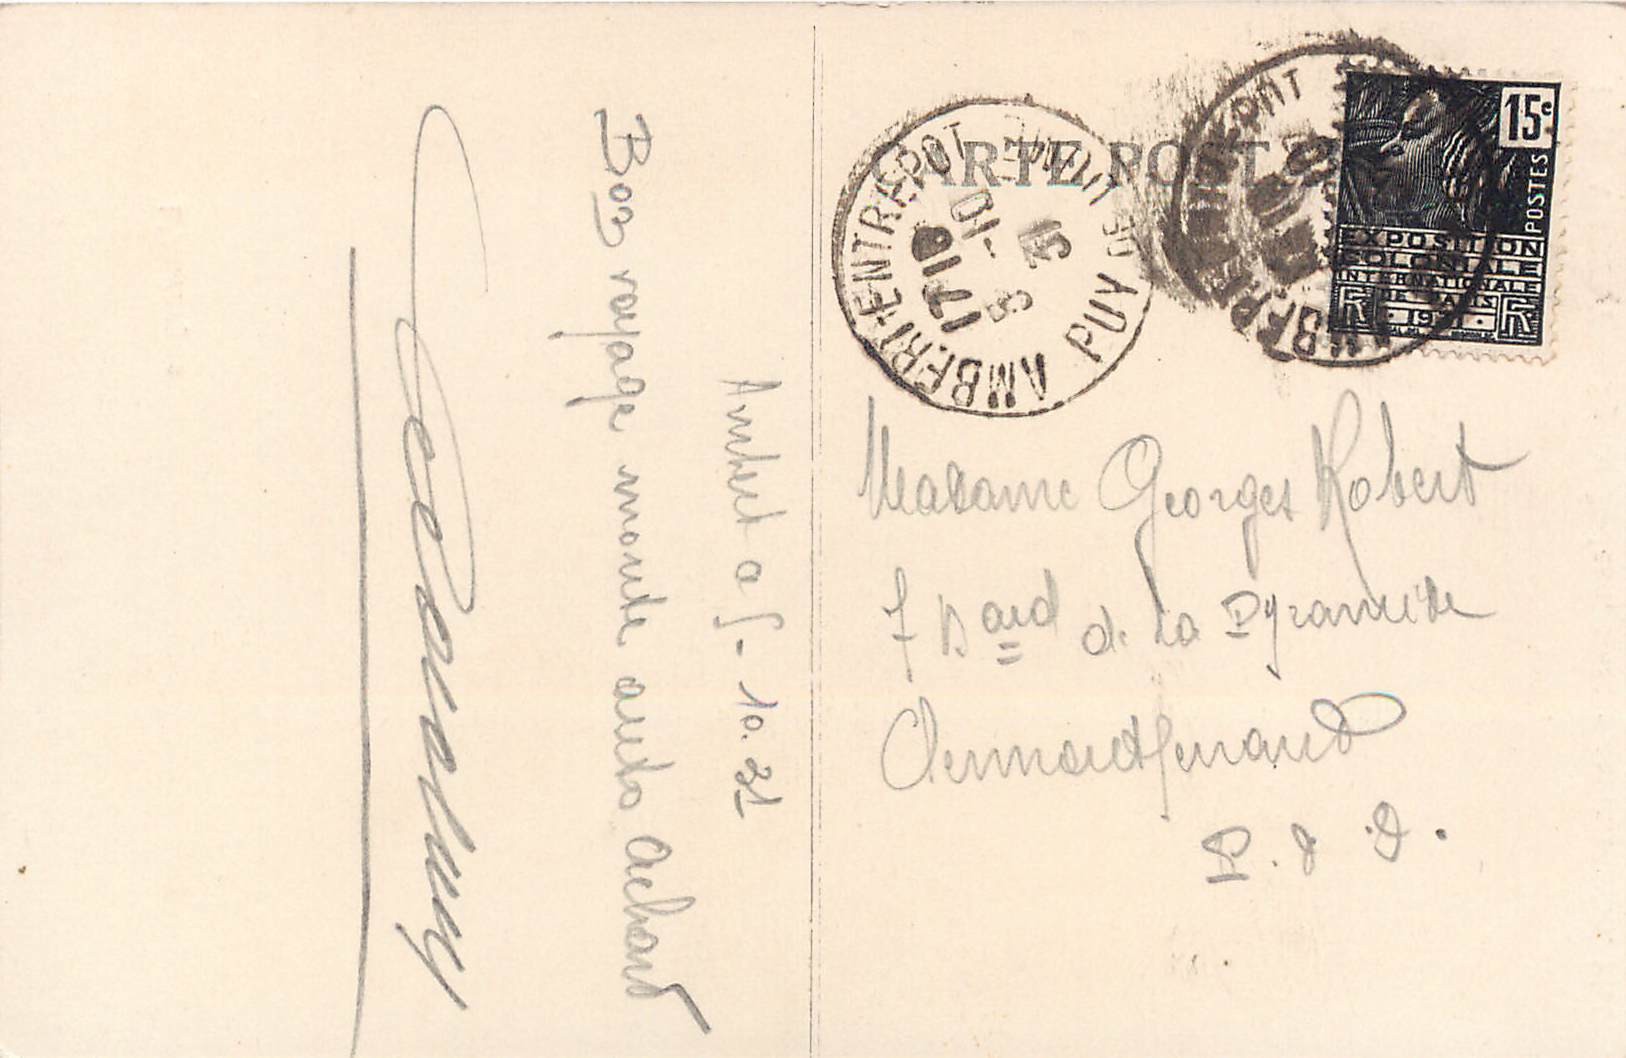 Ambert a 5-10.31
Bon voyage monte auto Achard
CARTE POSTALE
AMBERT-ENTREPOT
PUY DE DOME
17 10
5 -10
31
15c
POSTES
EXPOSITION
COLONIALE
INTERNATIONALE
DE PARIS
1931
RF RF
Madame Georges Robert
7 Bard de La Pyramide
Clermont ferrand
P. d D.